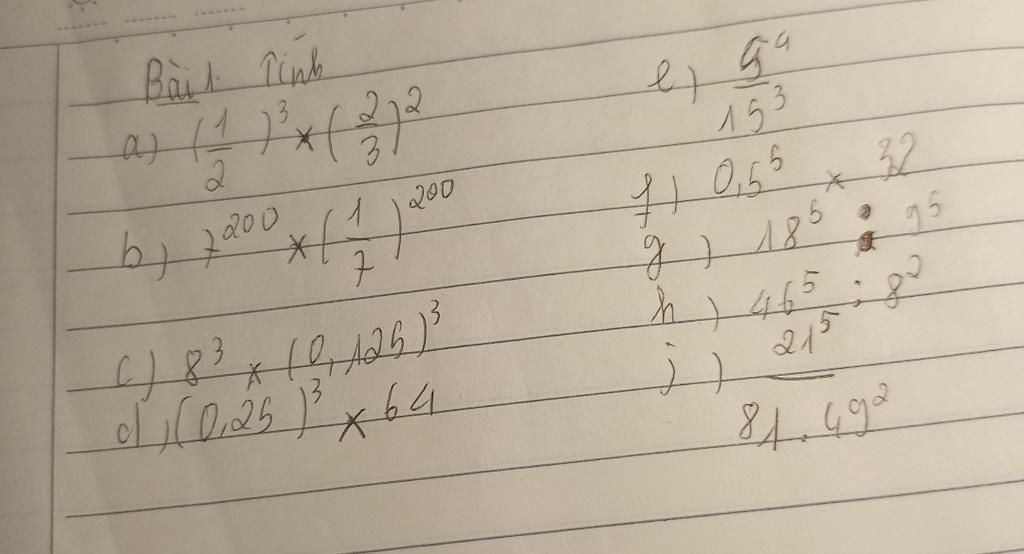 Bài 1. Tính
a) (1/2)³ × (2/3)²
b) 7²⁰⁰ × (1/7)²⁰⁰
c) 8³ × (0,125)³
d) (0,25)³ × 64
e) 5⁴/15³
f) 0,5⁵ × 32
g) 18⁵ : 9⁵
h) 46⁵ : 8²
j) 21⁵/81.49²